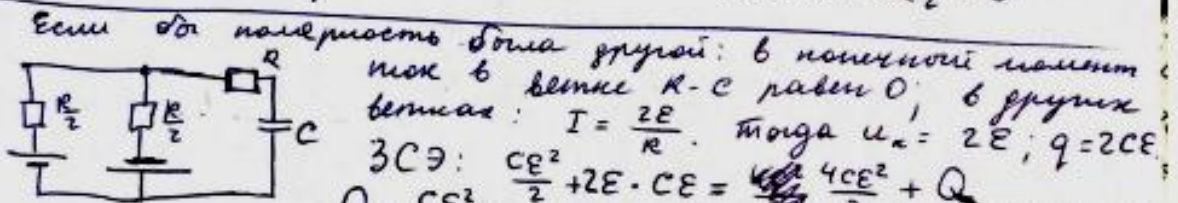 Если бы полярность была другой: в конечный момент
R
ток в ветке R-C равен 0, в других
R/2
R/2
C
ветках: I = 2ε/R. Тогда uк = 2ε; q = 2Cε
ЗСЭ: Cε²/2 + 2ε·Cε = 4Cε²/2 + Q